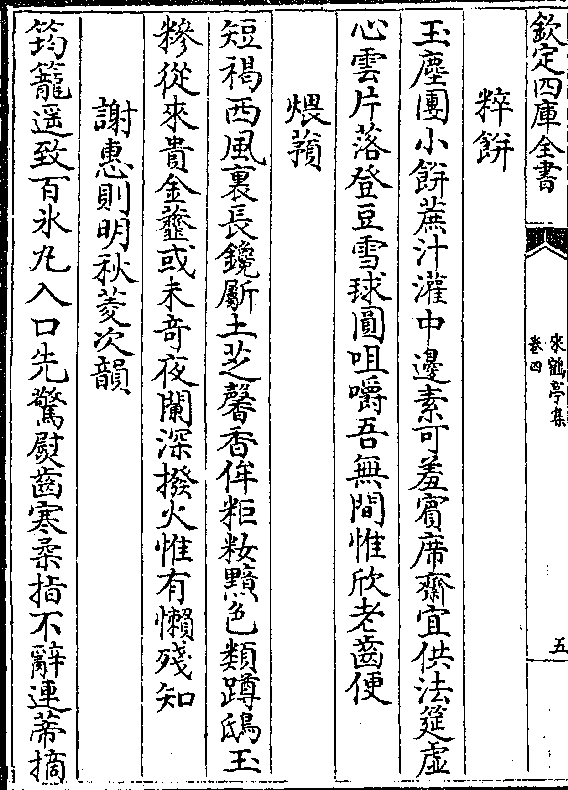 欽定四庫全書
來鶴亭集
卷四
五
粹餅
玉塵團小餅蔗汁灌中邊素可羞賓席齋宜供法筵虛
心雲片落登豆雪球圓咀嚼吾無間惟欣老齒便
煨蕷
短褐西風裏長鑱斸土芝馨香侔粔籹黯色類蹲鴟玉
糝從來貴金虀或未奇夜闌深撥火惟有懶殘知
謝惠則明秋菱次韻
筠籠遥致百氷丸入口先驚熨齒寒柔指不辭連蒂摘